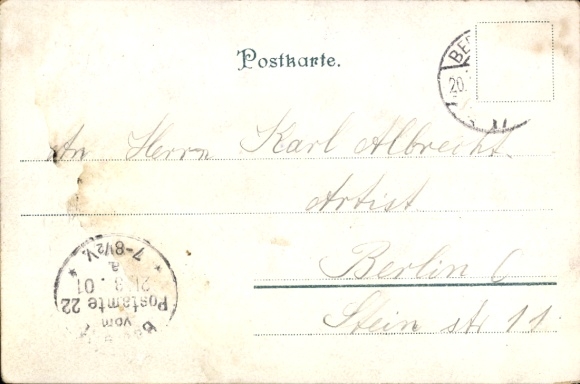 Postkarte.
BE
20.
An Herrn Karl Albrecht.
Artist
Berlin C
Stein str 11.
7-8½V.
a.
21.8.01
Postamte 22
vom